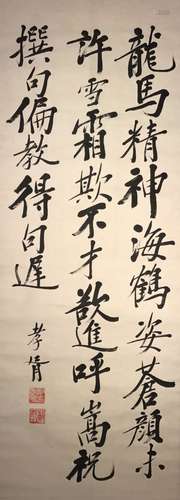 龍馬精神海鶴姿蒼顏未
許雪霜欺不才欲進呼嵩祝
撰句偏教得句遲
孝胥